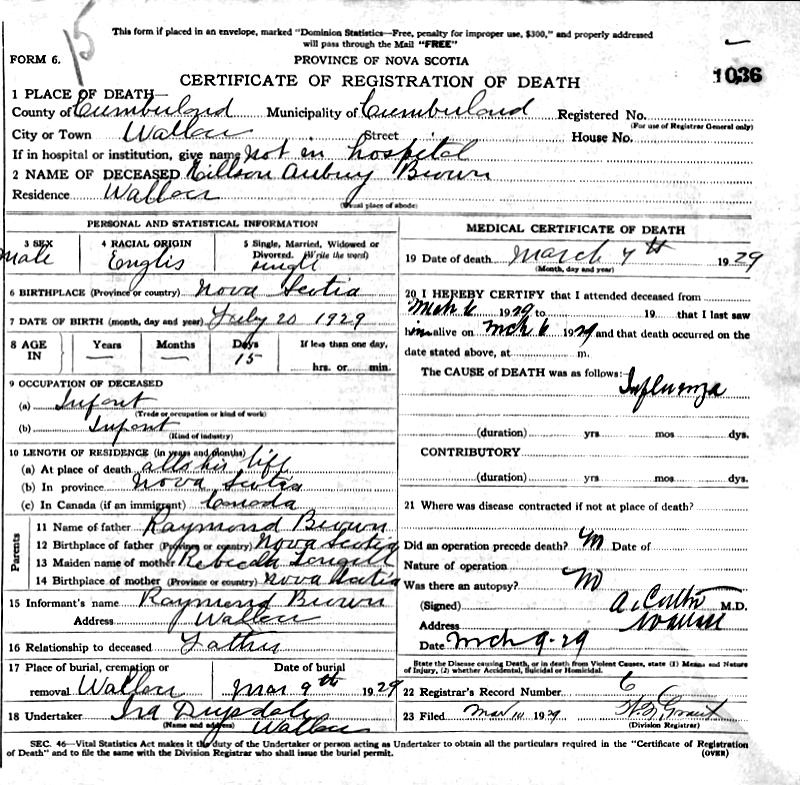 15
This form if placed in an envelope, marked "Dominion Statistics—Free, penalty for improper use, $300," and properly addressed
will pass through the Mail "FREE"
FORM 6.
PROVINCE OF NOVA SCOTIA
CERTIFICATE OF REGISTRATION OF DEATH
1036
1 PLACE OF DEATH—
County of Cumberland Municipality of Cumberland Registered No.
(For use of Registrar General only)
City or Town Wallace Street House No.
If in hospital or institution, give name Not in hospital
2 NAME OF DECEASED Aubry Brown
Residence Wallace
(Usual place of abode)
PERSONAL AND STATISTICAL INFORMATION
3 SEX 4 RACIAL ORIGIN 5 Single, Married, Widowed or
Divorced. (Write the word)
Male Englis single
6 BIRTHPLACE (Province or country) Nova Scotia
7 DATE OF BIRTH (month, day and year) 20 1929
8 AGE IN Years Months Days If less than one day,
— — 15 hrs. or min.
9 OCCUPATION OF DECEASED
(a) Infant
(Trade or occupation or kind of work)
(b) Infant
(Kind of industry)
10 LENGTH OF RESIDENCE (in years and months)
(a) At place of death all his life
(b) In province Nova Scotia
(c) In Canada (if an immigrant) Canada
Parents
11 Name of father Raymond Brown
12 Birthplace of father (Province or country) Nova Scotia
13 Maiden name of mother Rebecca
14 Birthplace of mother (Province or country) Nova Scotia
15 Informant's name Raymond Brown
Address Wallace
16 Relationship to deceased Father
17 Place of burial, cremation or Date of burial
removal Wallace Mar 9th 1929
18 Undertaker Ira
(Name and address) Wallace
MEDICAL CERTIFICATE OF DEATH
19 Date of death March 7th 1929
(Month, day and year)
20 I HEREBY CERTIFY that I attended deceased from
Mch 6 1929 to 19 that I last saw
him alive on Mch 6 1929 and that death occurred on the
date stated above, at m.
The CAUSE of DEATH was as follows:
Influenza
(duration) yrs mos dys.
CONTRIBUTORY
(duration) yrs mos dys.
21 Where was disease contracted if not at place of death?
Did an operation precede death? No Date of
Nature of operation
Was there an autopsy? No
(Signed) M.D.
Address Wallace
Date Mch 9-29
State the Disease causing Death, or in death from Violent Causes, state (1) Means and Nature
of Injury, (2) whether Accidental, Suicidal or Homicidal.
22 Registrar's Record Number 6
23 Filed Mar 10 1929 Grant
(Division Registrar)
SEC. 46—Vital Statistics Act makes it the duty of the Undertaker or person acting as Undertaker to obtain all the particulars required in the "Certificate of Registration
of Death" and to file the same with the Division Registrar who shall issue the burial permit. (OVER)